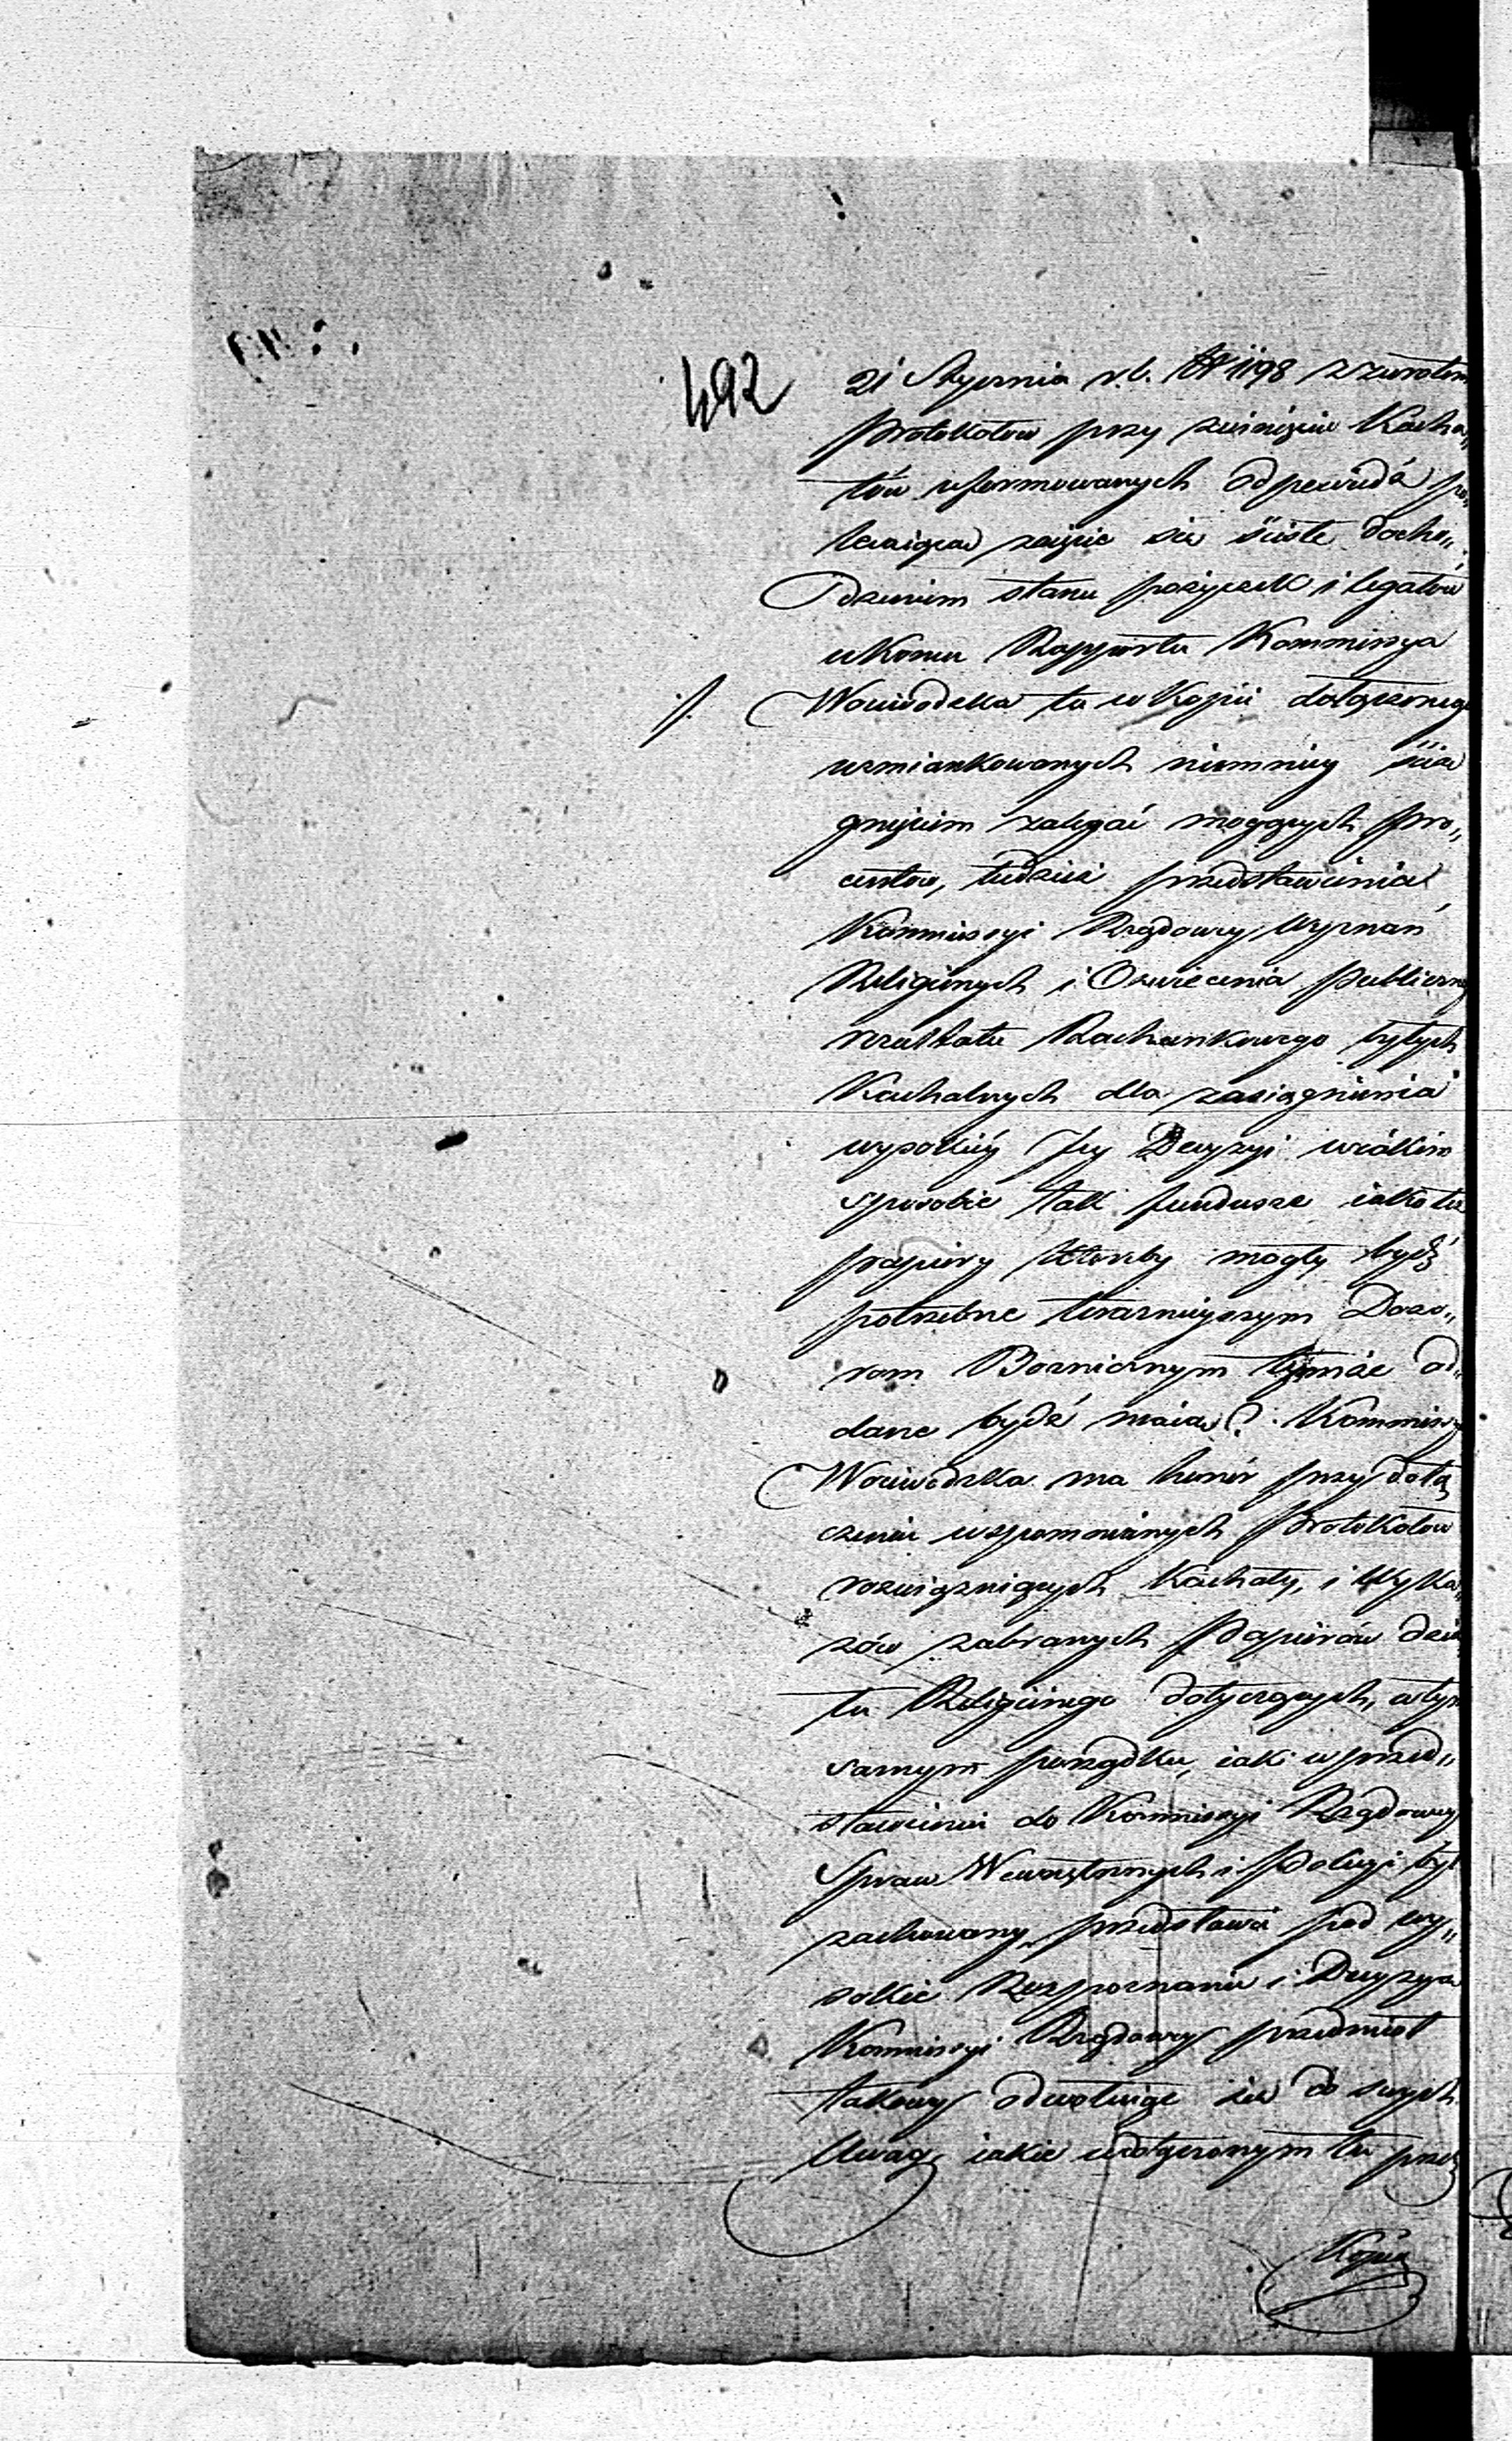 492
21 Stycznia r. b. N 1198 z zwrotem
Protokołów przy zwinięciu Kacha„
łów uformowanych odpowiedź po„
lecaiąca zaięcie się ściśle docho„
dzeniem stanu pożyczek i legatów
w końcu Rapportu Kommissya
Woiewódzka tu w Kopii dołączonego
wzmiankowanych niemniey ścią
gnięciem zalegać mogących pro„
centów, tudzież przedstawienia
Kommissyi Rządowey Wyznań
Religiinych i Oświecenia Publiczne
rezultatu Rachunkowego byłych
Kachalnych dla zasiągnienia
wysokiéy Jey Decyzyi w iakim
sposobie tak fundusze iako też
papiery któreby mogły bydź
potrzebne teraznieyszym Dozo„
rom Bożnicznym tymże od„
dane bydź maią? Kommissy
Woiewódzka ma honor przy dołą
czeniu wspomnianych Protokołów
rozwiązuiących Kachały, i Wyka„
zów zabranych Papierów
tu Religiinego dotyczących, w tym
samym porządku, iaki w przed„
stawieniu do Kommissyi Rządowey
Spraw Wewnętrznych i Policyi był
zachowany, przedstawić pod wy„
sokie Rozpoznanie i Decyzyą
Kommissyi Rządowey przedmiot
takowy odwołuiąc się do swych
Uwag, iakie w dołączonym tu przy
Kopia